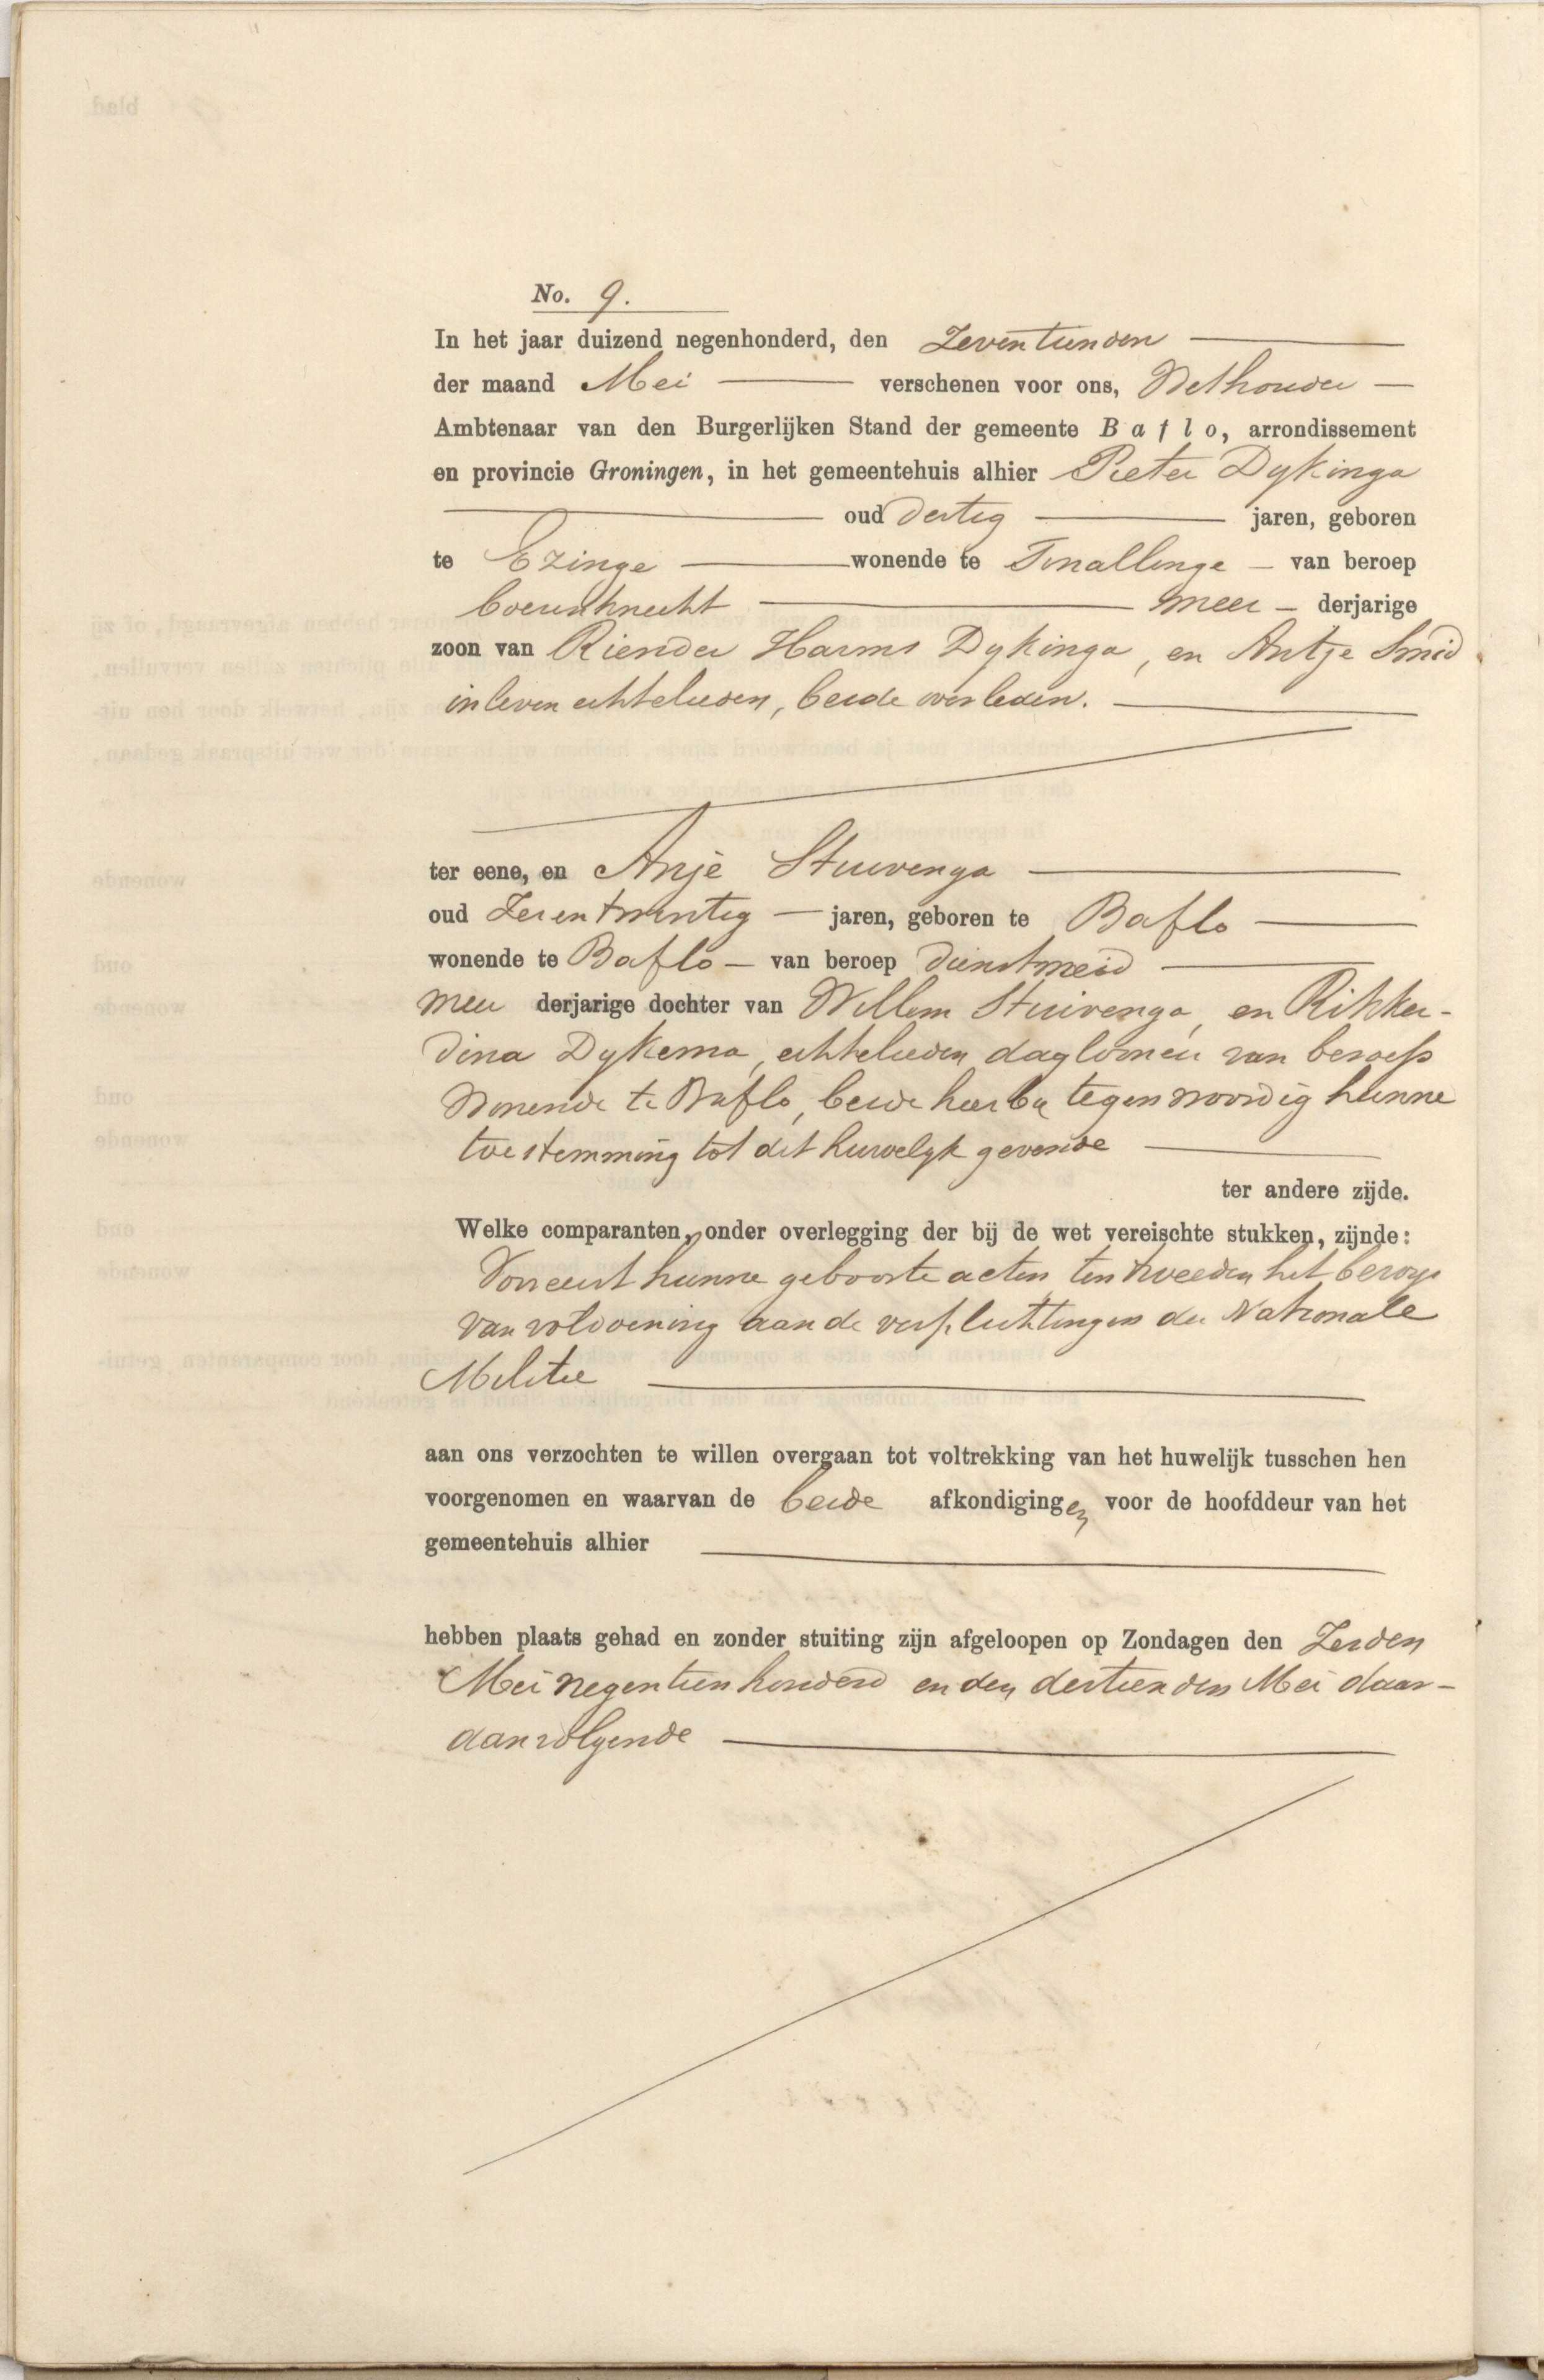 No. 9.
In het jaar duizend negenhonderd, den Zeventienden
der maand Mei verschenen voor ons, Wethouder
Ambtenaar van den Burgerlijken Stand der gemeente Baflo, arrondissement
en provincie Groningen, in het gemeentehuis alhier Pieter Dykinga
oud dertig jaren, geboren
te Ezinge wonende te Tinallinge van beroep
boerenknecht meer derjarige
zoon van Riender Harms Dykinga, en Antje Smid
in leven echtelieden, beide overleden.
ter eene, en Anje Stuivenga
oud Zesentwintig jaren, geboren te Baflo
wonende te Baflo van beroep dienstmeid
meer derjarige dochter van Willem Stuivenga, en Rikker-
dina Dykema, echtelieden dagloners van beroep
Wonende te Baflo, beide hierby tegenwoordig hunne
toestemming tot dit huwelyk gevende
ter andere zijde.
Welke comparanten, onder overlegging der bij de wet vereischte stukken, zijnde:
Vooreerst hunne geboorte acten, ten tweeden het bewys
van voldoening aan de verplichtingen der Nationale
Militie
aan ons verzochten te willen overgaan tot voltrekking van het huwelijk tusschen hen
voorgenomen en waarvan de beide afkondigingen voor de hoofddeur van het
gemeentehuis alhier
hebben plaats gehad en zonder stuiting zijn afgeloopen op Zondagen den Zesden
Mei negentienhonderd en den dertienden Mei daar-
aanvolgende